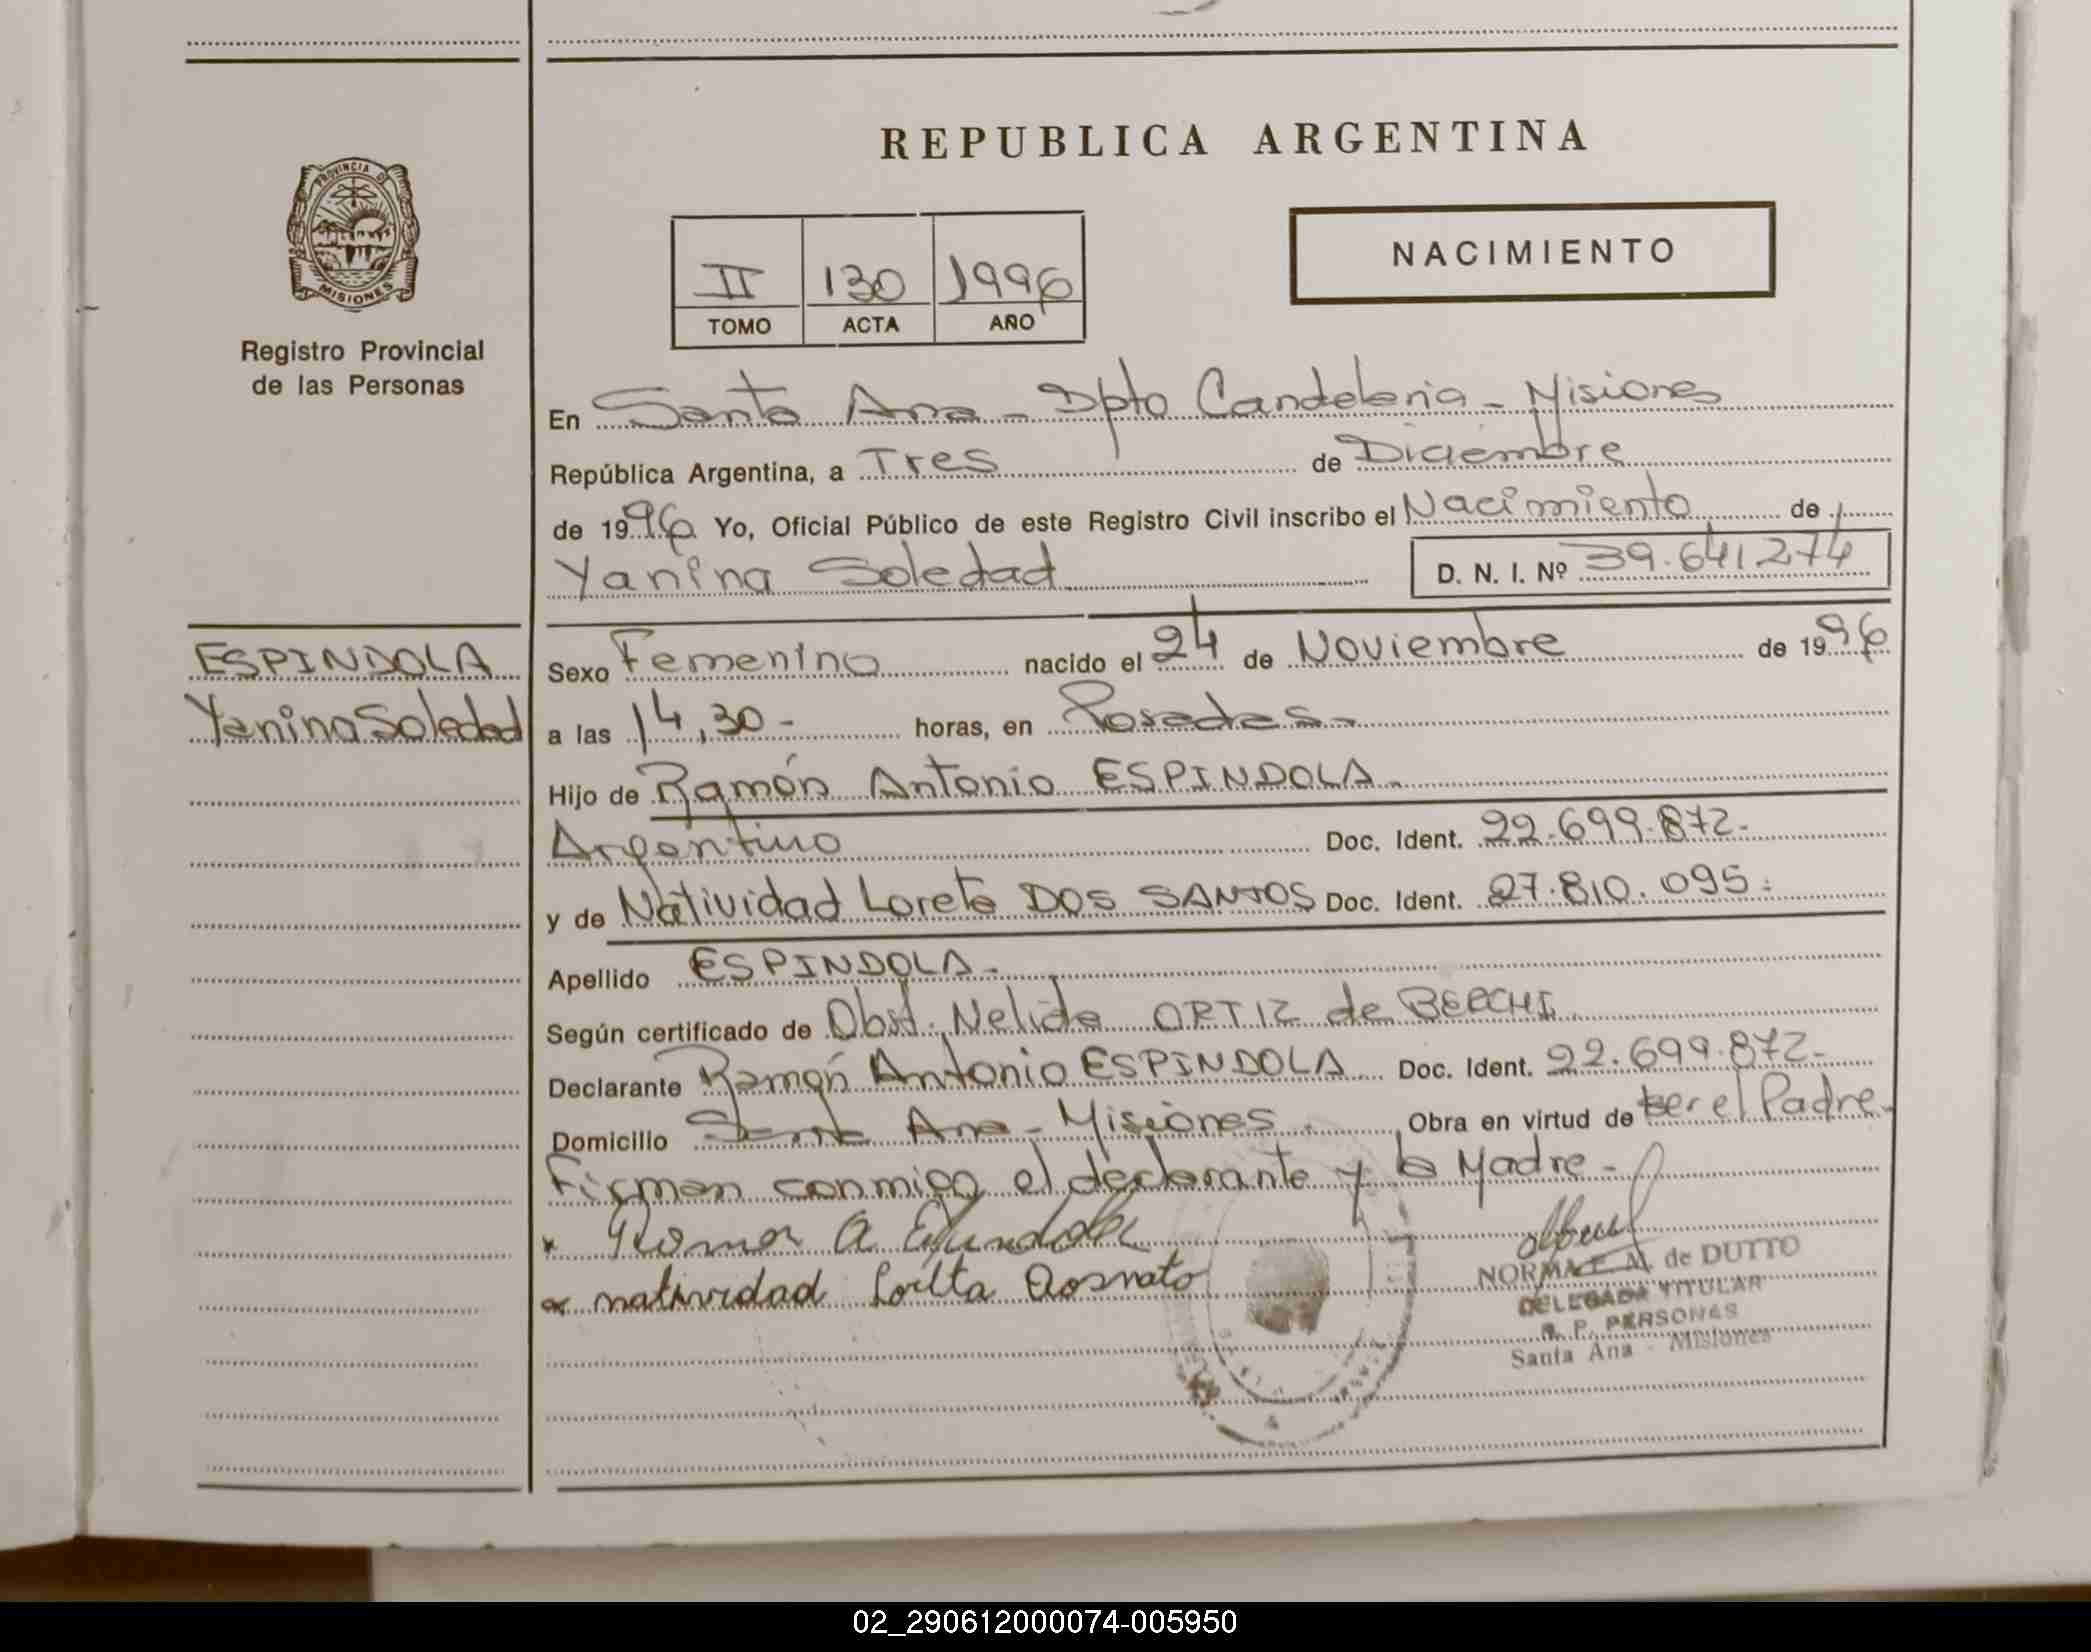 REPUBLICA ARGENTINA
PROVINCIA DE
MISIONES
Registro Provincial
de las Personas
NACIMIENTO
II 130 1996
TOMO ACTA AÑO
En Santa Ana - Dpto Candelaria - Misiones
República Argentina, a Tres de Diciembre
de 1996 Yo, Oficial Público de este Registro Civil inscribo el Nacimiento de
Yanina Soledad D. N. I. Nº 39.641.274
ESPINDOLA
Yanina Soledad
Sexo Femenino nacido el 24 de Noviembre de 1996
a las 14,30 - horas, en Posadas -
Hijo de Ramón Antonio ESPINDOLA -
Argentino Doc. Ident. 22.699.872-
y de Natividad Loreto DOS SANTOS Doc. Ident. 27.810.095-
Apellido ESPINDOLA -
Según certificado de Obst. Nelida ORTIZ de BERCHI
Declarante Ramón Antonio ESPINDOLA Doc. Ident. 22.699.872-
Domicilio Santa Ana - Misiones. Obra en virtud de ser el Padre -
Firman conmigo el declarante y la Madre -
x Ramon A
x natividad
NORMA E. M. de DUTTO
DELEGADA TITULAR
R. P. PERSONAS
Santa Ana - Misiones
02_290612000074-005950